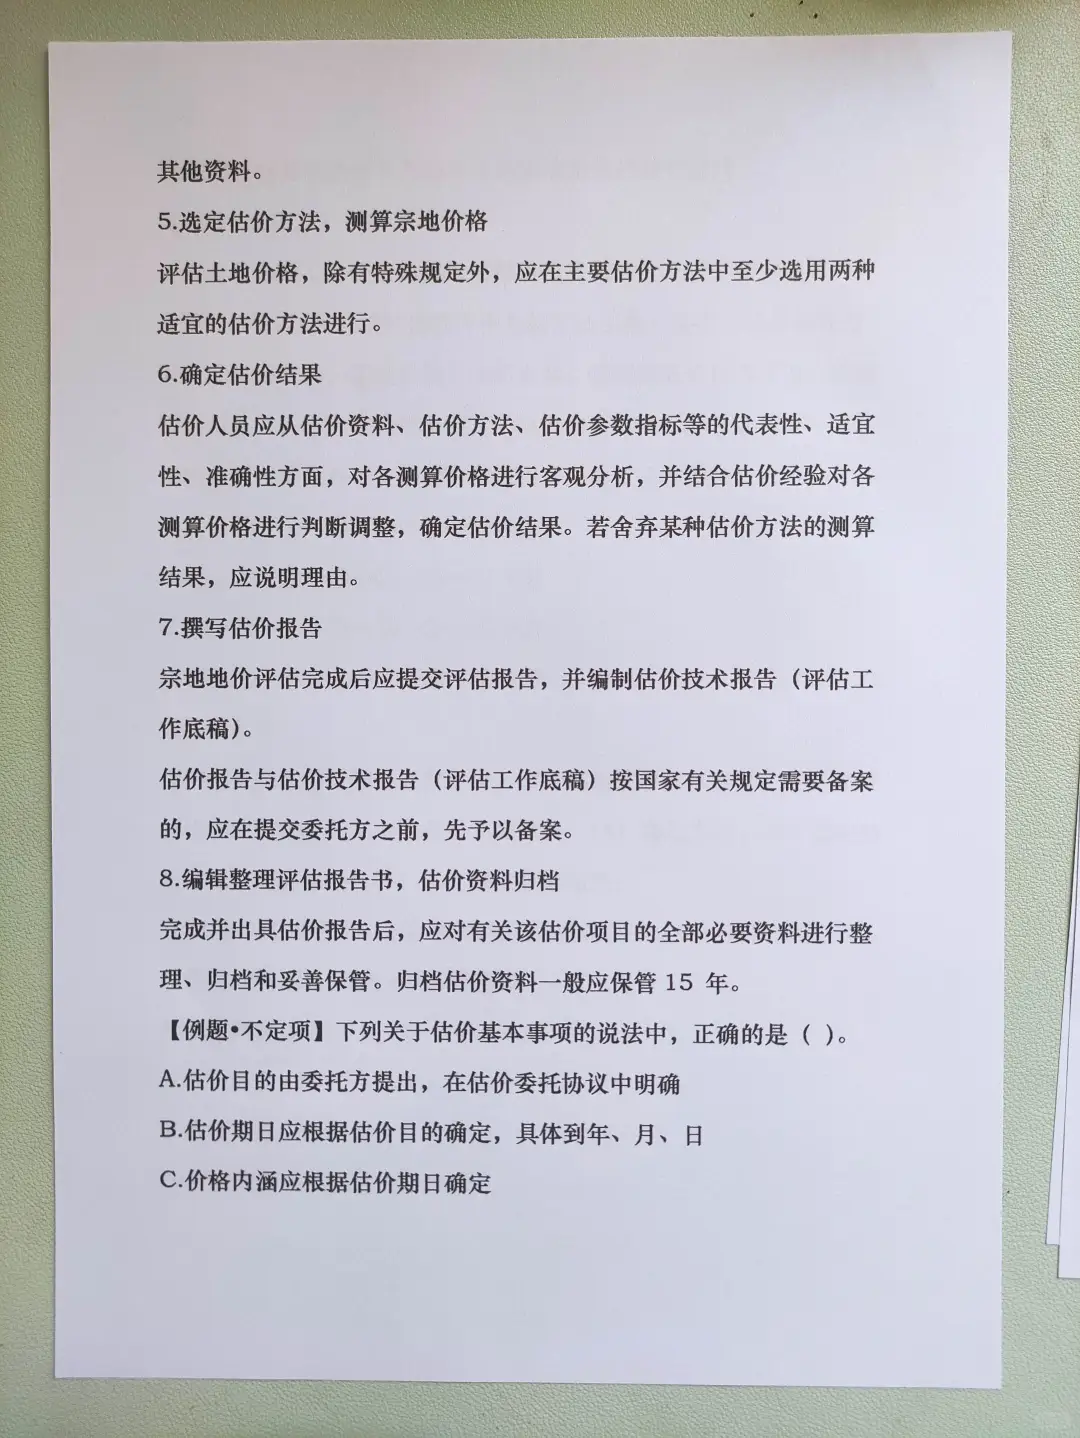 其他资料。
5.选定估价方法，测算宗地价格
评估土地价格，除有特殊规定外，应在主要估价方法中至少选用两种
适宜的估价方法进行。
6.确定估价结果
估价人员应从估价资料、估价方法、估价参数指标等的代表性、适宜
性、准确性方面，对各测算价格进行客观分析，并结合估价经验对各
测算价格进行判断调整，确定估价结果。若舍弃某种估价方法的测算
结果，应说明理由。
7.撰写估价报告
宗地地价评估完成后应提交评估报告，并编制估价技术报告（评估工
作底稿）。
估价报告与估价技术报告（评估工作底稿）按国家有关规定需要备案
的，应在提交委托方之前，先予以备案。
8.编辑整理评估报告书，估价资料归档
完成并出具估价报告后，应对有关该估价项目的全部必要资料进行整
理、归档和妥善保管。归档估价资料一般应保管 15 年。
【例题•不定项】下列关于估价基本事项的说法中，正确的是（ ）。
A.估价目的由委托方提出，在估价委托协议中明确
B.估价期日应根据估价目的确定，具体到年、月、日
C.价格内涵应根据估价期日确定